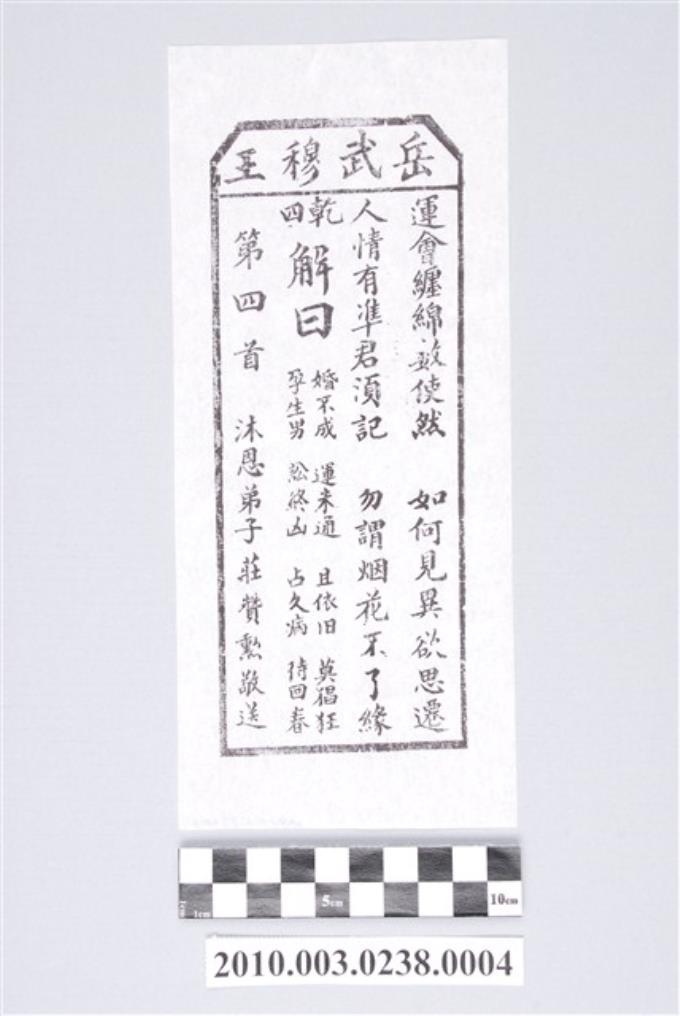 岳武穆王
運會纏綿數使然 如何見異欲思遷
人情有準君須記 勿謂烟花不了緣
乾四
解曰
婚不成 運未通 且依旧 莫猖狂
孕生男 訟終凶 占久病 待回春
第四首 沐恩弟子莊贊勲敬送
1cm 5cm 10cm
2010.003.0238.0004